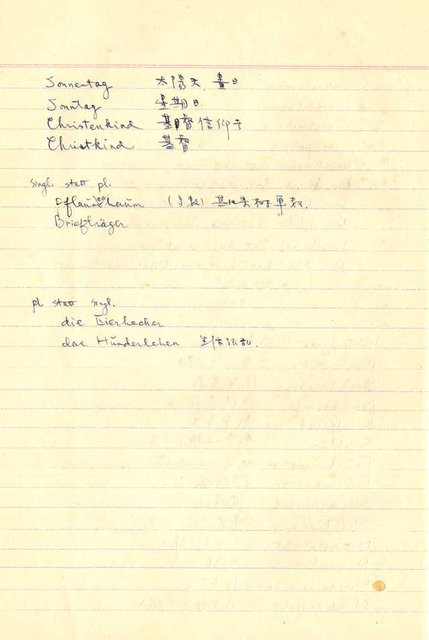 Sonnentag 太陽天, 晝日
Sonntag 星期日
Christenkind 基督信仰子
Christkind 基督
singl. statt pl.
Pflaumbaum (多数) 其他果树單数.
Briefträger
pl. statt singl.
die Eierbecher
das Hünderlchen